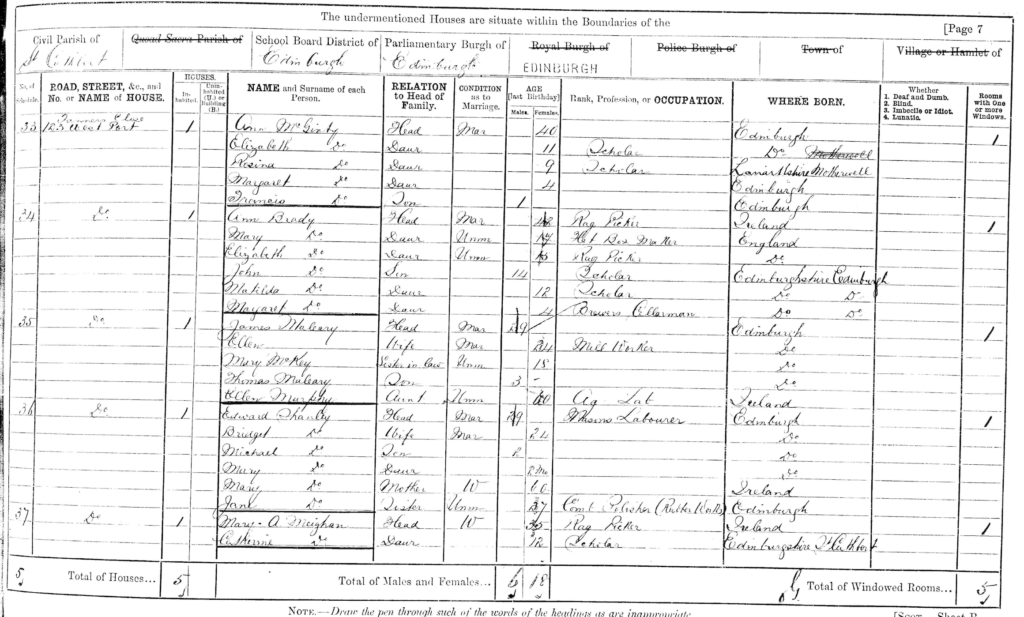 The undermentioned Houses are situate within the Boundaries of the
[Page 7
Civil Parish of Quoad Sacra Parish of School Board District of Parliamentary Burgh of Royal Burgh of Police Burgh of Town of Village or Hamlet of
St Cuthbert Edinburgh Edinburgh EDINBURGH
No. of Schedule. ROAD, STREET, &c., and No. or NAME of HOUSE. HOUSES. Inhabited. Uninhabited (U.) or Building (B.) NAME and Surname of each Person. RELATION to Head of Family. CONDITION as to Marriage. AGE [last Birthday] Males. Females. Rank, Profession, or OCCUPATION. WHERE BORN. Whether 1. Deaf and Dumb. 2. Blind. 3. Imbecile or Idiot. 4. Lunatic. Rooms with One or more Windows.
33 123 West Port 1 Ann McGinty Head Mar 40 Edinburgh 1
Elizabeth Do Daur 11 Scholar Do Motherwell
Rosina Do Daur 9 Scholar Lanarkshire Motherwell
Margaret Do Daur 4 Edinburgh
Francis Do Son 1 Edinburgh
34 Do 1 Ann Brady Head Mar 48 Rag Picker Ireland 1
Mary Do Daur Unm 17 Hat Box Maker England
Elizabeth Do Daur Unm Rag Picker Do
John Do Son 14 Scholar Edinburghshire Edinburgh
Matilda Do Daur 12 Scholar Do Do
Margaret Do Daur 4 Do Do
35 Do 1 James Maleary Head Mar 29 Brewers Cellerman Edinburgh 1
Ellen Wife Mar 24 Mill Worker Do
Mary McKey Sister in law Unm 18 Do
Thomas Maleary Son 3 - Do
Ellen Murphy Aunt Unm 60 Ag Lab Ireland
36 Do 1 Edward Shanley Head Mar 29 Masons Labourer Edinburgh 1
Bridget Do Wife Mar 24 Do
Michael Do Son 2 Do
Mary Do Daur 2 Mo Do
Mary Do Mother W 66 Ireland
Jane Do Sister Unm 37 Comb Polisher (Rubber Works) Edinburgh
37 Do 1 Mary A Meighan Head W 35 Rag Picker Ireland 1
Catherine Do Daur 12 Scholar Edinburgshire St Cuthbert
5 Total of Houses... 5 Total of Males and Females... 6 18 Total of Windowed Rooms... 5
NOTE.—Draw the pen through such of the words of the headings as are inappropriate
[Scot.—Sheet B